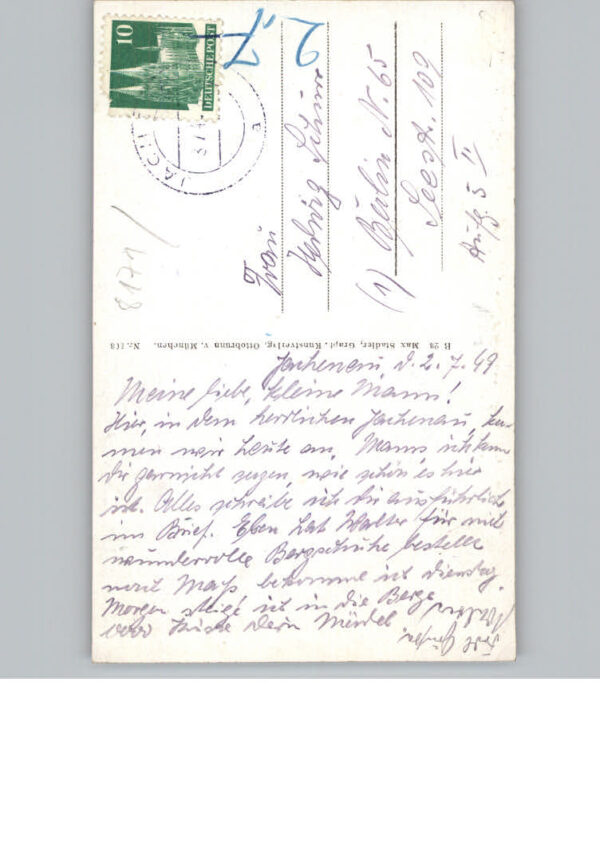 10
DEUTSCHE POST
JACH
3.7.4
a
2.7
8171
Frau
Helwig Schure
(1) Berlin N. 65
Seestr. 109
Aufg. 5 II
B 28 Max Stadler, Graph. Kunstverlag, Ottobrunn v. München. Nr. 108
Jachenau, d. 2.7.49
Meine liebe, kleine Mann!
Hier, in dem herrlichen Jachenau, ka-
men wir heute an. Mann, ich kann
dir garnicht sagen, wie schön es hier
ist. Alles schreibe ich dir ausführlich
im Brief. Eben hat Walter für mich
wundervolle Bergschuhe bestellt
nach Maß bekomme ich Dienstag.
Morgen steige ich in die Berge
Küsse Dein
Walter